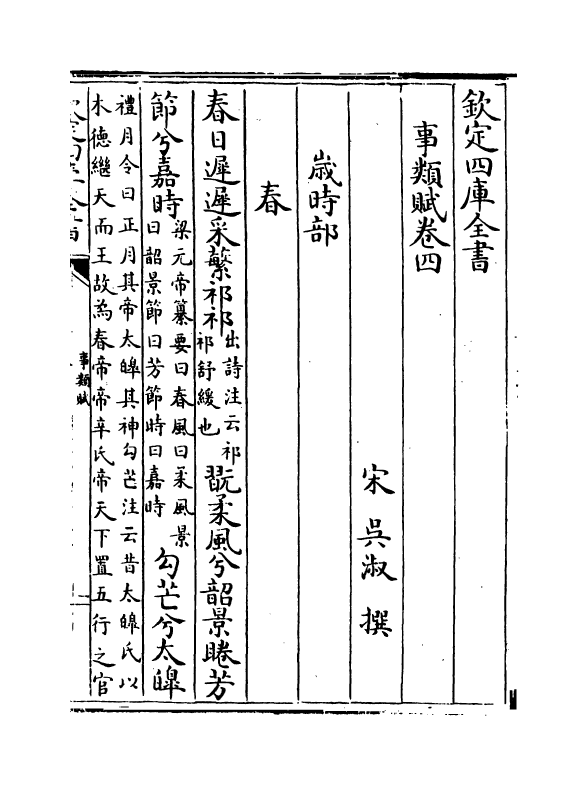 欽定四庫全書
事類賦卷四
宋 吳淑 撰
歲時部
春
春日遲遲采蘩祁祁出詩注云祁祁舒緩也翫柔風兮韶景睠芳
節兮嘉時梁元帝纂要曰春風曰柔風景曰韶景節曰芳節時曰嘉時勾芒兮太皥
禮月令曰正月其帝太皥其神勾芒注云昔太皥氏以
木德繼天而王故為春帝帝辛氏帝天下置五行之官
事類賦